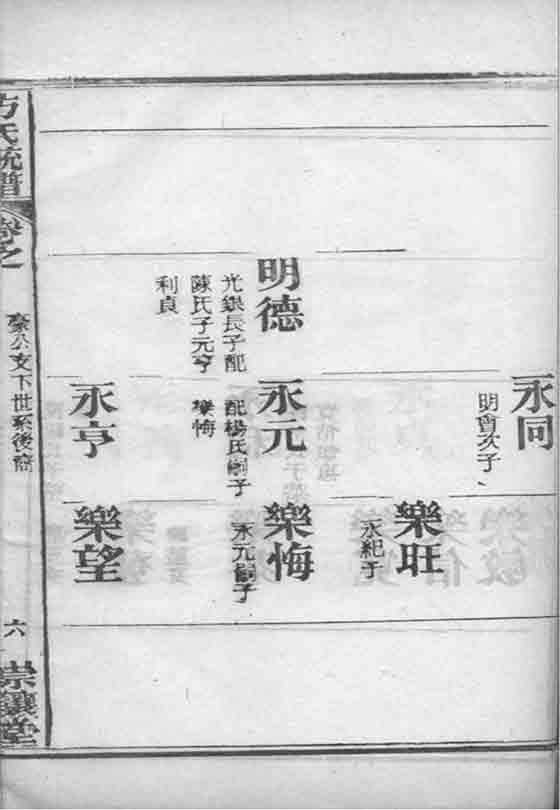 永同
明會次子
樂旺
永紀子
明德
光銀長子配
陳氏子元亨
利貞
永元
配楊氏嗣子
樂悔
樂悔
永元嗣子
永亨
樂望
方氏統譜
卷之
公支下世系後裔
六
崇讓堂